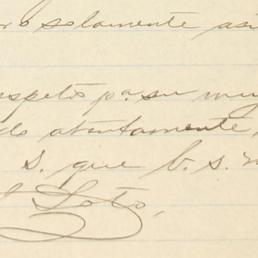 solamente asi
respeto pa. su muy
do atentamente,
S. que b. s. m
Soto,